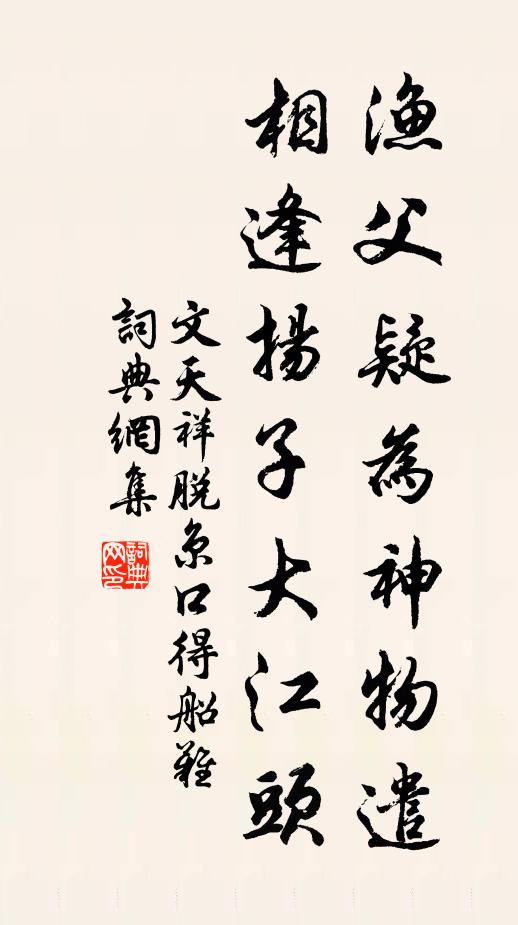 漁父疑為神物遣
相逢揚子大江頭
文天祥脱京口得船難
詞典網集
詞典網印